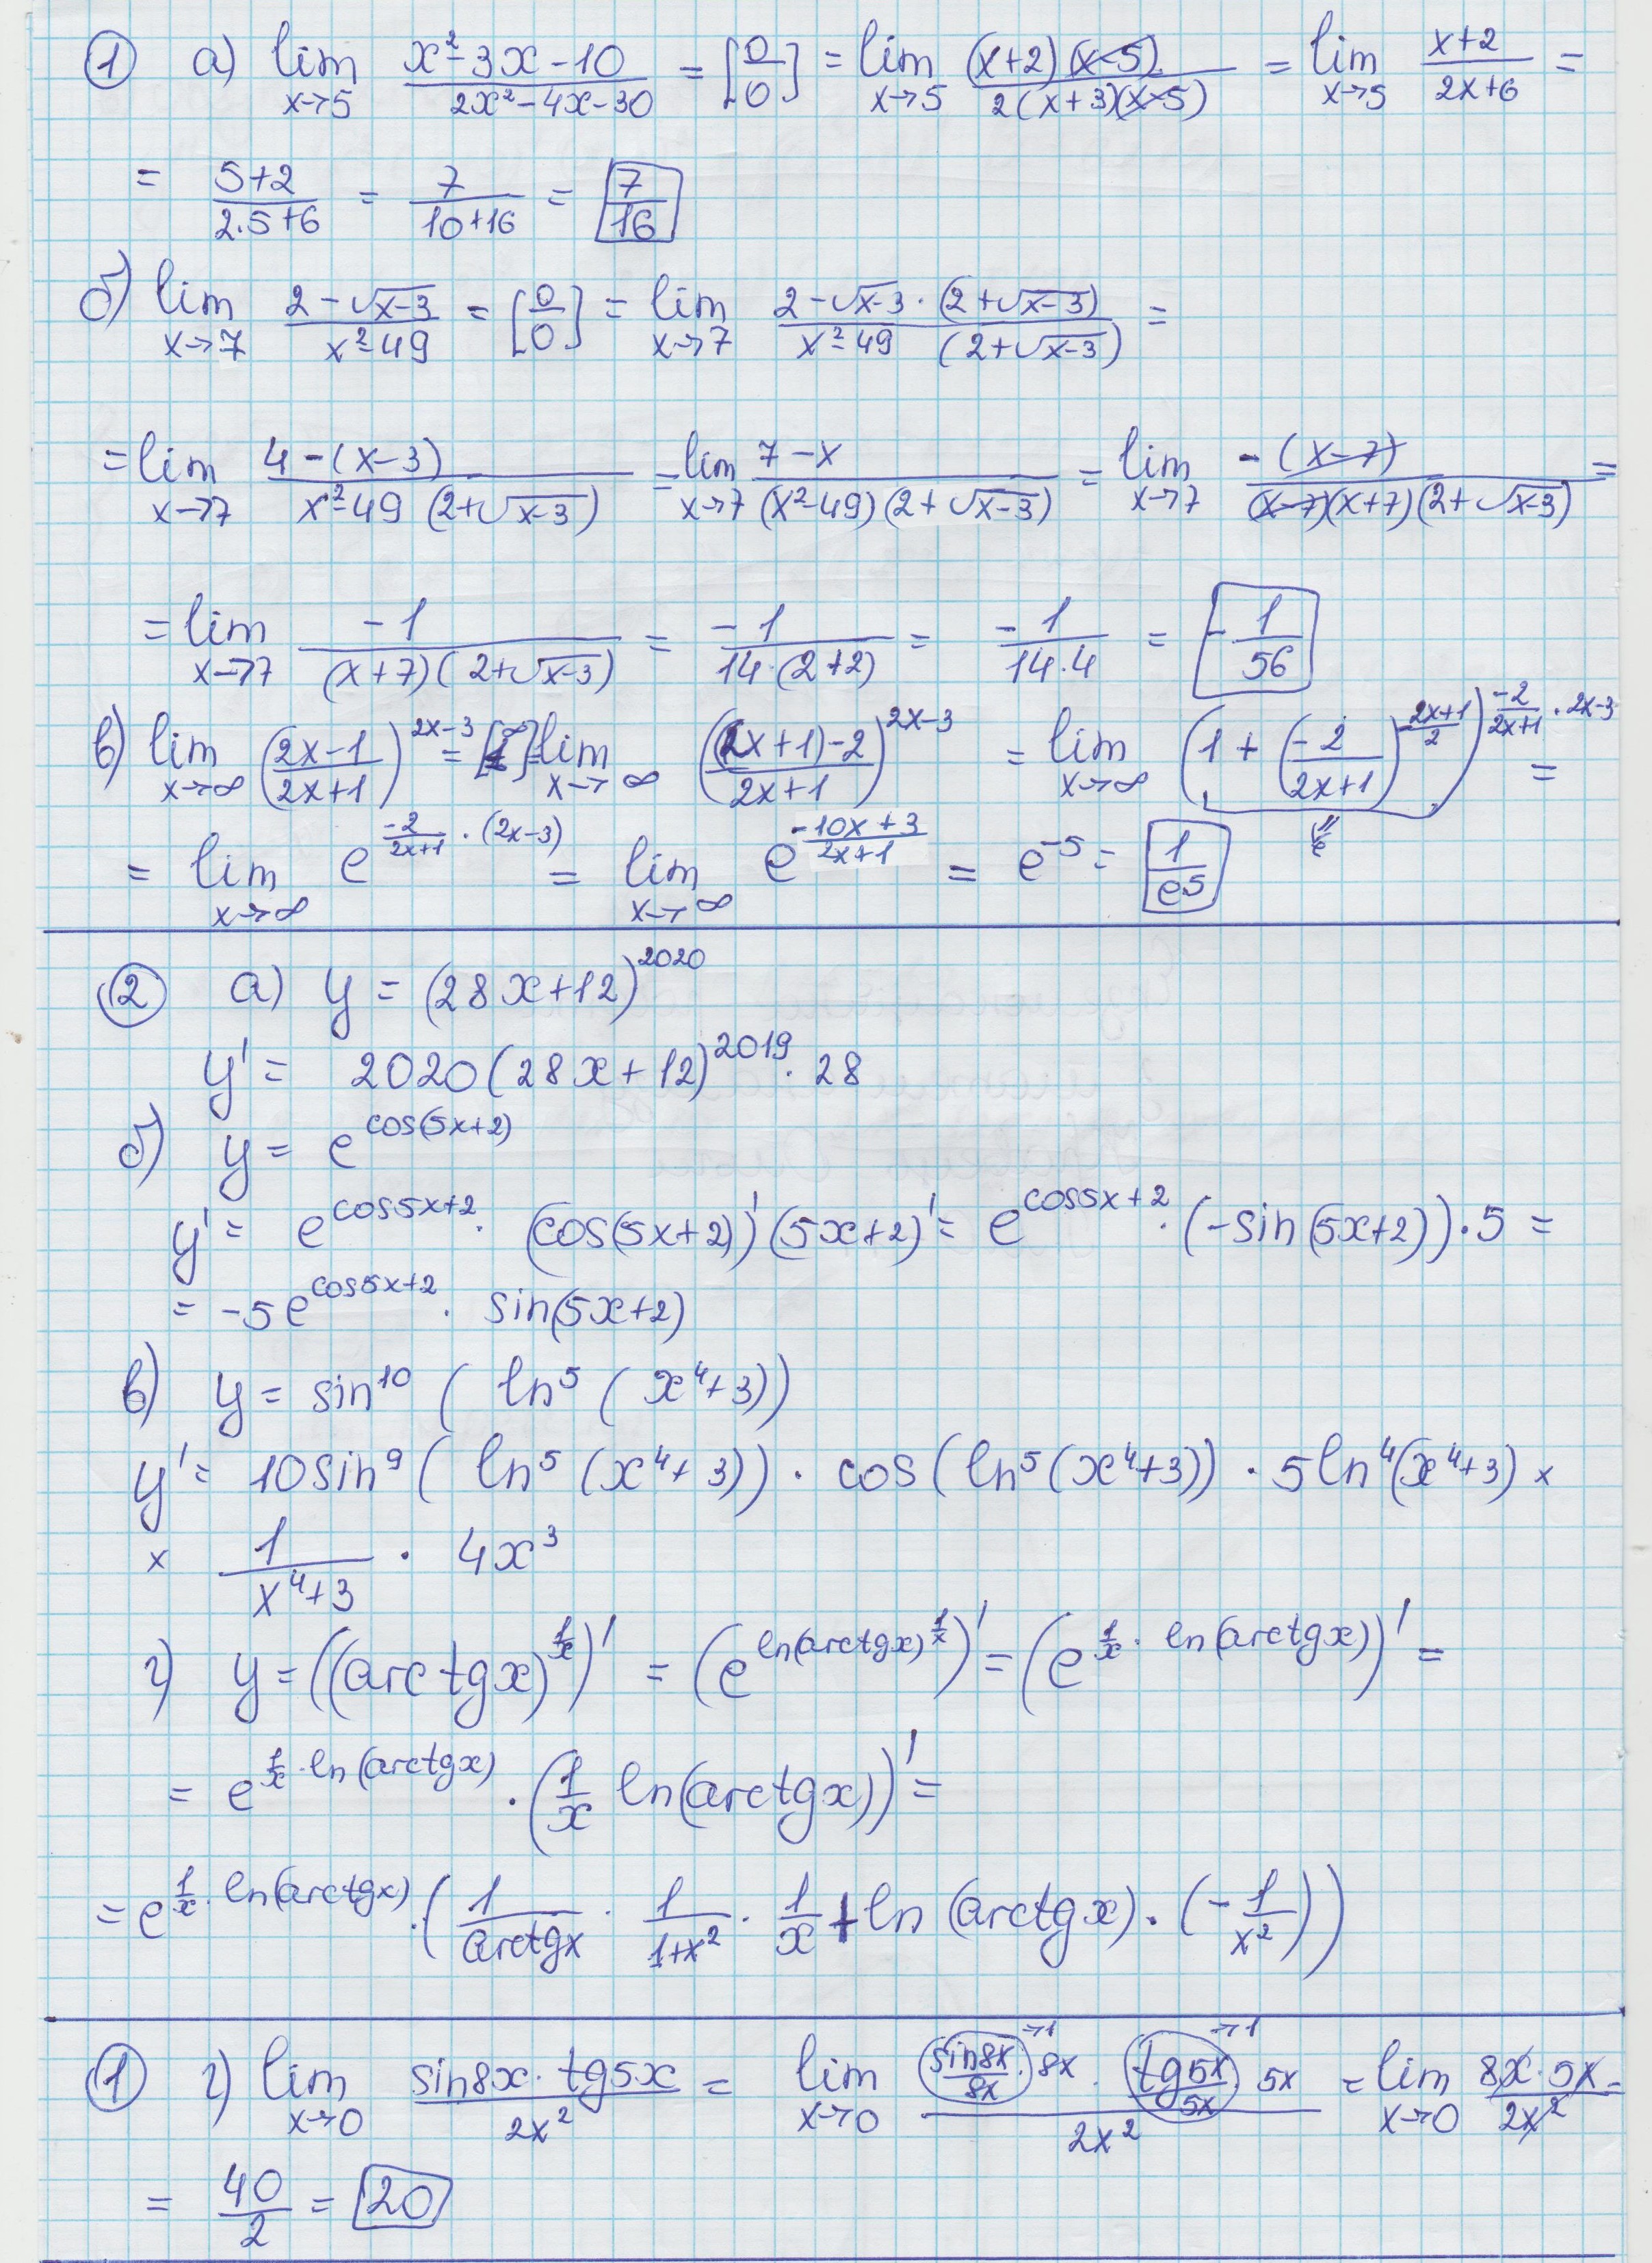 ① а) lim x→5 (x²-3x-10)/(2x²-4x-30) = [0/0] = lim x→5 (x+2)(x-5)/2(x+3)(x-5) = lim x→5 (x+2)/(2x+6) =
= (5+2)/(2·5+6) = 7/(10+16) = 7/16
б) lim x→7 (2-√(x-3))/(x²-49) = [0/0] = lim x→7 2-√(x-3)·(2+√(x-3))/x²-49 (2+√(x-3)) =
= lim x→7 4-(x-3)/x²-49(2+√(x-3)) = lim x→7 7-x/(x²-49)(2+√(x-3)) = lim x→7 -(x-7)/(x-7)(x+7)(2+√(x-3)) =
= lim x→7 -1/(x+7)(2+√(x-3)) = -1/14·(2+2) = -1/14·4 = -1/56
в) lim x→∞ ((2x-1)/(2x+1))^(2x-3) = [1^∞] = lim x→∞ (((2x+1)-2)/(2x+1))^(2x-3) = lim x→∞ (1+(-2/(2x+1))^(-(2x+1)/2))^(-2/(2x+1)·2x-3) =
= lim x→∞ e^(-2/(2x+1)·(2x-3)) = lim x→∞ e^((-10x+3)/(2x+1)) = e^-5 = 1/e5
② а) y = (28x+12)^2020
y' = 2020(28x+12)^2019·28
б) y = e^cos(5x+2)
y' = e^(cos5x+2)·(cos(5x+2))'(5x+2)' = e^(cos5x+2)·(-sin(5x+2))·5 =
= -5e^(cos5x+2)·sin(5x+2)
в) y = sin¹⁰(ln⁵(x⁴+3))
y' = 10sin⁹(ln⁵(x⁴+3))·cos(ln⁵(x⁴+3))·5ln⁴(x⁴+3)×
× 1/(x⁴+3)·4x³
г) y = ((arctgx)^(1/x))' = (e^(ln(arctgx)^(1/x)))' = (e^(1/x·ln(arctgx)))' =
= e^(1/x·ln(arctgx))·(1/x ln(arctgx))' =
= e^(1/x·ln(arctgx))·(1/arctgx·1/(1+x²)·1/x+ln(arctgx)·(-1/x²))
① г) lim x→0 sin8x·tg5x/2x² = lim x→0 (sin8x/8x →1·8x·tg5x/5x →1 5x)/2x² = lim x→0 8x·5x/2x² =
= 40/2 = 20